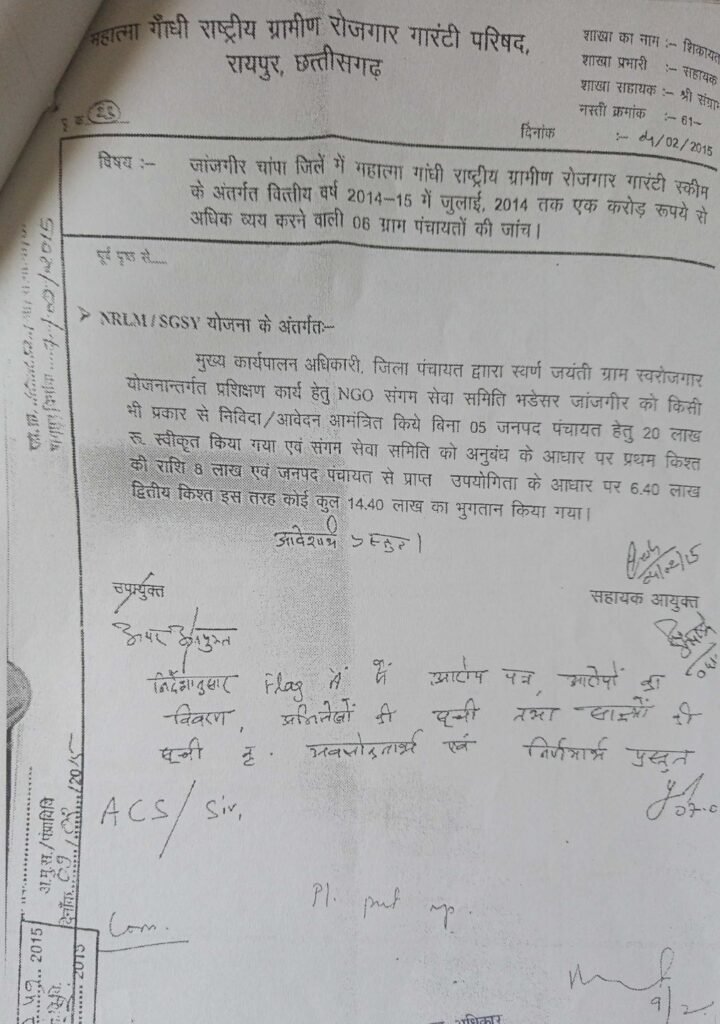 महात्मा गाँधी राष्ट्रीय ग्रामीण रोजगार गारंटी परिषद,
रायपुर, छत्तीसगढ़
शाखा का नाम :- शिकायत
शाखा प्रभारी :- सहायक
शाखा सहायक :- श्री संग्रा
नस्ती क्रमांक :- 61-
दिनांक :- /02/2015
विषय :- जांजगीर चांपा जिलें में महात्मा गांधी राष्ट्रीय ग्रामीण रोजगार गारंटी स्कीम
के अंतर्गत वित्तीय वर्ष 2014-15 में जुलाई, 2014 तक एक करोड़ रूपये से
अधिक व्यय करने वाली 06 ग्राम पंचायतों की जांच।
पूर्व पृष्ठ से.....
➤ NRLM/SGSY योजना के अंतर्गतः-
मुख्य कार्यपालन अधिकारी, जिला पंचायत द्वाारा स्वर्ण जयंती ग्राम स्वरोजगार
योजनान्तर्गत प्रशिक्षण कार्य हेतु NGO संगम सेवा समिति भडेसर जांजगीर को किसी
भी प्रकार से निविदा/आवेदन आमंत्रित किये बिना 05 जनपद पंचायत हेतु 20 लाख
रू. स्वीकृत किया गया एवं संगम सेवा समिति को अनुबंध के आधार पर प्रथम किश्त
की राशि 8 लाख एवं जनपद पंचायत से प्राप्त उपयोगिता के आधार पर 6.40 लाख
द्वितीय किश्त इस तरह कोई कुल 14.40 लाख का भुगतान किया गया।
आदेशार्थ प्रस्तुत।
सहायक आयुक्त
उपायुक्त
अपर आयुक्त
निर्देशानुसार Flag में आरोप पत्र, आरोपों का
विवरण, अभिलेखों की सूची तथा साक्ष्यों की
सूची कृ. अवलोकनार्थ एवं निर्णयार्थ प्रस्तुत
ACS/ Sir,
Pl. put up.
Com.
9/2
अ.मु.स./पंग्राविवि
दिनाँक /2015
2015
2015